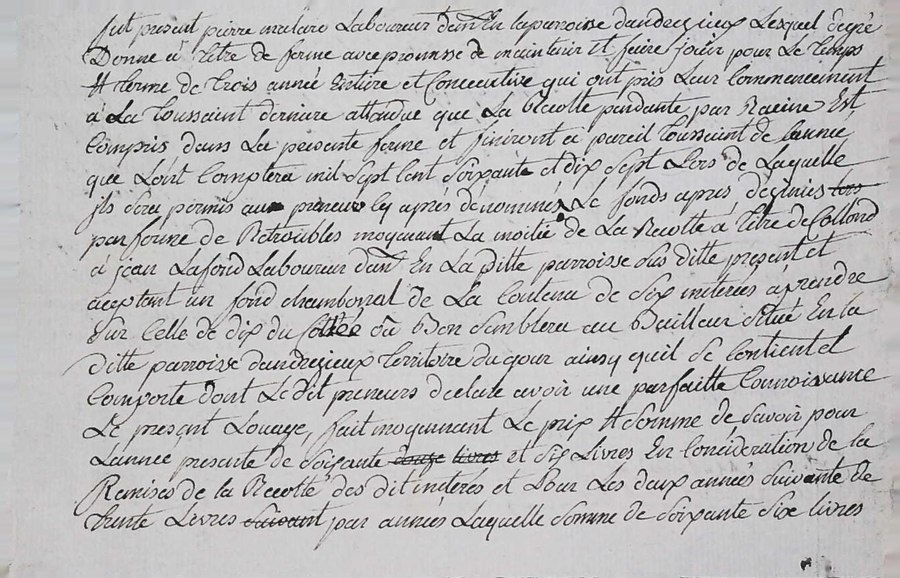 fut present pierre mulard Laboureur dt En La paroisse dandrejieux Lesquel de gré
Donne à titre de ferme avec promesse de maintenir et feire jouir pour Le temps
et terme de trois année Entiere et Consecutive qui ont pris Leur Commencement
à La toussaint derniere attendue que La Recolte pendante par Racine Est
Compris dans La presente ferme et finiront à pareil toussaint de Lannee
que Lont Comptera mil sept Cent soixante et dix sept Lors de Laquelle
jls sera permis au preneur Cy après denommés Le fonds apres designés Lors
par forme de Retroubles moyenant La moitié de La Recolte à titre de
à jean Lafond Laboureur dt En La ditte parroisse present et
aceptant un fond chambonnal de La Contenu de six meterées à prendre
sur Celle de dix du où Bon semblera au Bailleur situé En La
ditte parroisse dandrejieux territoire du gour ainsy quil se Contient et
Comporte dont Le dit preneurs declare avoir une parfaitte Connoissance
Le present Louage, fait moyennant Le prix et somme de savoir pour
Lannee presente de soixante douze livres et six Livres En Concideration de La
Remises de la Recolte des dit meterés et pour Les deux années suivante de
trente Livres suivant par années Laquelle somme de soixante six livres